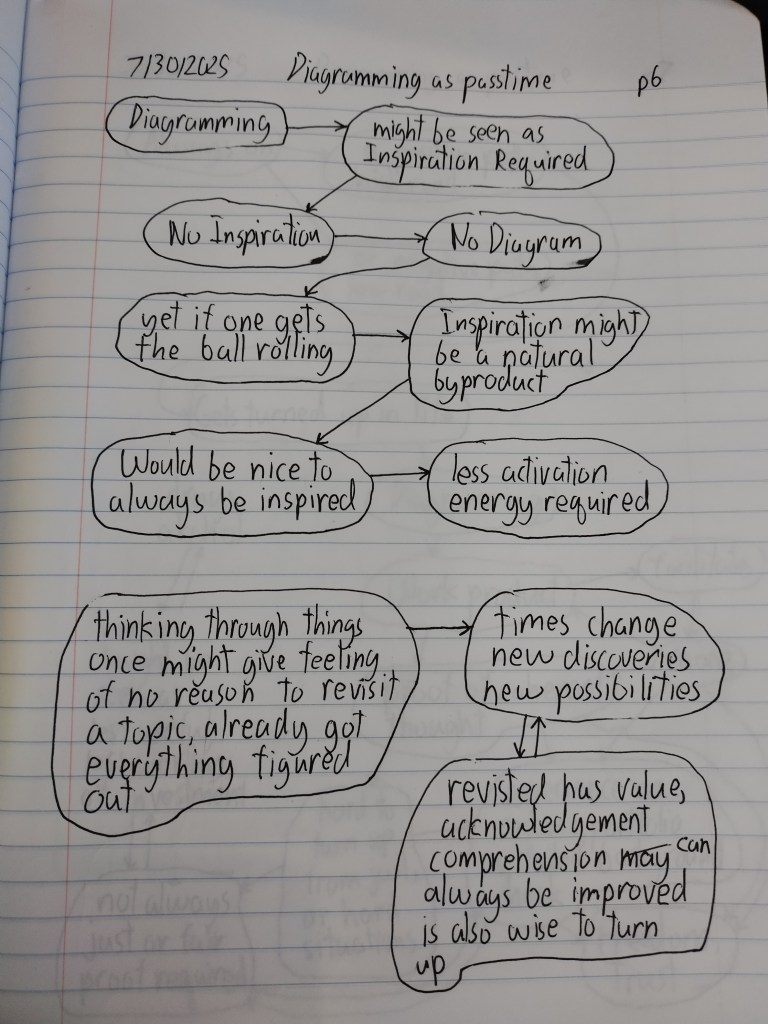 7/30/2025 Diagramming as passtime p6
Diagramming
might be seen as
Inspiration Required
No Inspiration
No Diagram
yet if one gets
the ball rolling
Inspiration might
be a natural
byproduct
Would be nice to
always be inspired
less activation
energy required
thinking through things
once might give feeling
of no reason to revisit
a topic, already got
everything figured
out
times change
new discoveries
new possibilities
revisted has value,
acknowledgement
comprehension may can
always be improved
is also wise to turn
up
not always
just or fair
proof required